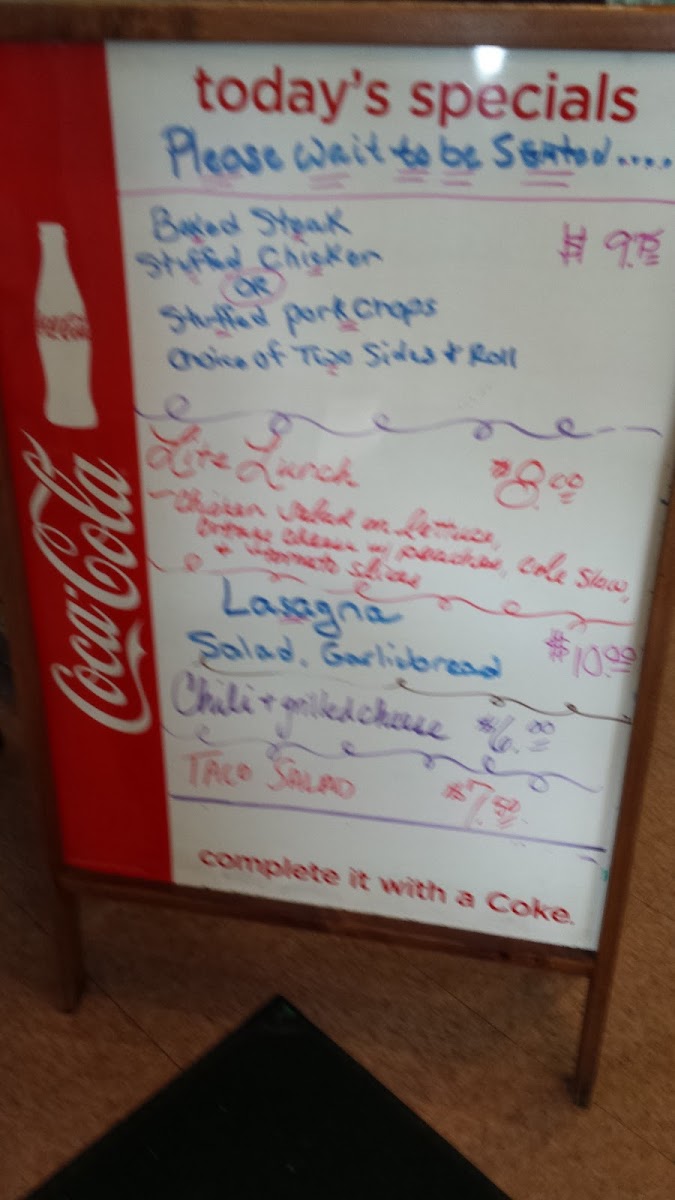 today's specials
Please wait to be Seated....
Baked Steak
Stuffed Chicken
$9.75
OR
Stuffed pork chops
Choice of Two Sides + Roll
Lite Lunch $8.00
Chicken Salad on lettuce,
cottage cheese w/ peaches, Cole Slaw,
+ tomato slices
Lasagna
Salad, Garlicbread $10.00
Chili + grilled cheese $6.00
TACO SALAD $7.50
complete it with a Coke.
Coca-Cola
Coca-Cola